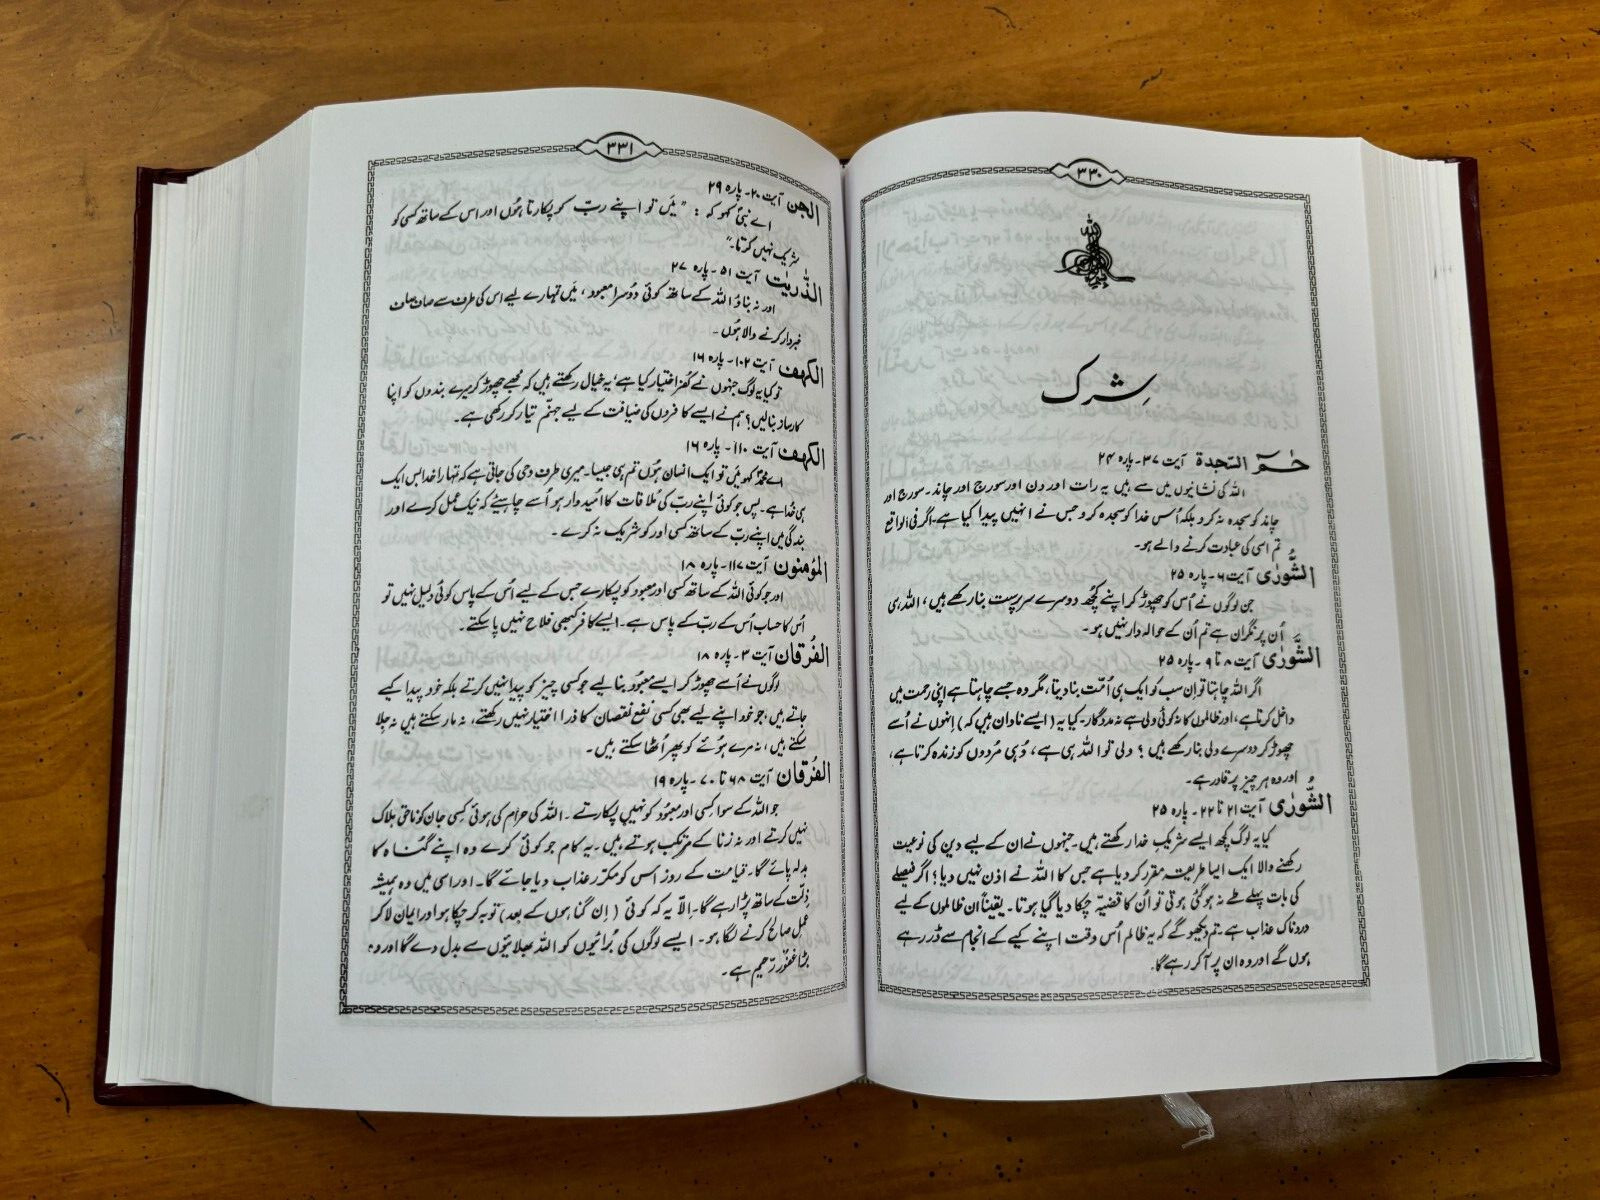 ۳۳۰
شِرک
حٰمٓ السّجدۃ آیت ۳۷۔ پارہ ۲۴
اللہ کی نشانیوں میں سے ہیں یہ رات اور دن اور سورج اور چاند۔ سورج اور
چاند کو سجدہ نہ کرو بلکہ اُس خدا کو سجدہ کرو جس نے انہیں پیدا کیا ہے۔ اگر فی الواقع
تم اسی کی عبادت کرنے والے ہو۔
الشُّورٰی آیت ۶۔ پارہ ۲۵
جن لوگوں نے اُس کو چھوڑ کر اپنے کچھ دوسرے سرپرست بنا رکھے ہیں، اللہ ہی
اُن پر نگران ہے تم اُن کے حوالہ دار نہیں ہو۔
الشُّورٰی آیت ۸ تا ۹۔ پارہ ۲۵
اگر اللہ چاہتا تو اِن سب کو ایک ہی اُمّت بنا دیتا، مگر وہ جسے چاہتا ہے اپنی رحمت میں
داخل کرتا ہے، اور ظالموں کا نہ کوئی ولی ہے نہ مددگار۔ کیا یہ (ایسے نادان ہیں کہ) اِنہوں نے اُسے
چھوڑ کر دوسرے ولی بنا رکھے ہیں؟ ولی تو اللہ ہی ہے، وُہی مُردوں کو زندہ کرتا ہے،
اور وہ ہر چیز پر قادر ہے۔
الشُّورٰی آیت ۲۱ تا ۲۲۔ پارہ ۲۵
کیا یہ لوگ کچھ ایسے شریکِ خدا رکھتے ہیں۔ جنہوں نے ان کے لیے دین کی نوعیت
رکھنے والا ایک ایسا طریقہ مقرر کر دیا ہے جس کا اللہ نے اذن نہیں دیا؟ اگر فیصلے
کی بات پہلے طے نہ ہو گئی ہوتی تو اُن کا قضیّہ چُکا دیا گیا ہوتا۔ یقیناً اُن ظالموں کے لیے
دردناک عذاب ہے۔ تم دیکھو گے کہ یہ ظالم اُس وقت اپنے کیے کے انجام سے ڈر رہے
ہوں گے اور وہ ان پر آ کر رہے گا۔
۳۳۱
الجن آیت ۲۰۔ پارہ ۲۹
اے نبیؐ کہو کہ: "مَیں تو اپنے ربّ کو پکارتا ہُوں اور اس کے ساتھ کسی کو
شریک نہیں کرتا۔"
الذّٰریٰت آیت ۵۱۔ پارہ ۲۷
اور نہ بناؤ اللہ کے ساتھ کوئی دُوسرا معبود، مَیں تمہارے لیے اس کی طرف سے صاف صاف
خبردار کرنے والا ہُوں۔
الکہف آیت ۱۰۲۔ پارہ ۱۶
تو کیا یہ لوگ جنہوں نے کُفر اختیار کیا ہے، یہ خیال رکھتے ہیں کہ مُجھے چھوڑ کر میرے بندوں کو اپنا
کارساز بنا لیں؟ ہم نے ایسے کافروں کی ضیافت کے لیے جہنّم تیار کر رکھی ہے۔
الکہف آیت ۱۱۰۔ پارہ ۱۶
اے محمّدؐ کہو مَیں تو ایک انسان ہُوں تم ہی جیسا۔ میری طرف وحی کی جاتی ہے کہ تمہارا خدا بس ایک
ہی خُدا ہے۔ پس جو کوئی اپنے ربّ کی مُلاقات کا اُمیدوار ہو اُسے چاہیئے کہ نیک عمل کرے اور
بندگی میں اپنے ربّ کے ساتھ کسی اور کو شریک نہ کرے۔
المُؤمنون آیت ۱۱۷۔ پارہ ۱۸
اور جو کوئی اللہ کے ساتھ کسی اور معبود کو پکارے جس کے لیے اُس کے پاس کوئی دلیل نہیں تو
اُس کا حساب اُس کے ربّ کے پاس ہے۔ ایسے کافر کبھی فلاح نہیں پا سکتے۔
الفُرقان آیت ۳۔ پارہ ۱۸
لوگوں نے اُسے چھوڑ کر ایسے معبُود بنا لیے جو کسی چیز کو پیدا نہیں کرتے بلکہ خود پیدا کیے
جاتے ہیں، جو خود اپنے لیے بھی کسی نفع نقصان کا ذرا اختیار نہیں رکھتے، نہ مار سکتے ہیں نہ جِلا
سکتے ہیں، نہ مرے ہُوئے کو پھر اُٹھا سکتے ہیں۔
الفُرقان آیت ۶۸ تا ۷۰۔ پارہ ۱۹
جو اللہ کے سوا کسی اور معبُود کو نہیں پکارتے۔ اللہ کی حرام کی ہوئی کسی جان کو ناحق ہلاک
نہیں کرتے اور نہ زنا کے مرتکب ہوتے ہیں۔ یہ کام جو کوئی کرے وہ اپنے گناہ کا
بدلہ پائے گا۔ قیامت کے روز اس کو مکرّر عذاب دیا جائے گا۔ اور اسی میں وہ ہمیشہ
ذِلّت کے ساتھ پڑا رہے گا۔ اِلّا یہ کہ کوئی (اِن گناہوں کے بعد) توبہ کر چکا ہو اور ایمان لا کر
عمل صالح کرنے لگا ہو۔ ایسے لوگوں کی بُرائیوں کو اللہ بھلائیوں سے بدل دے گا اور وہ
بڑا غفُور رّحیم ہے۔